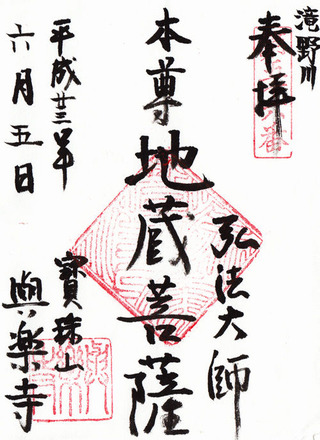 滝野川
奉拝
弘法大師
本尊
地蔵菩薩
寳珠山
與楽寺
平成廿三年
六月五日